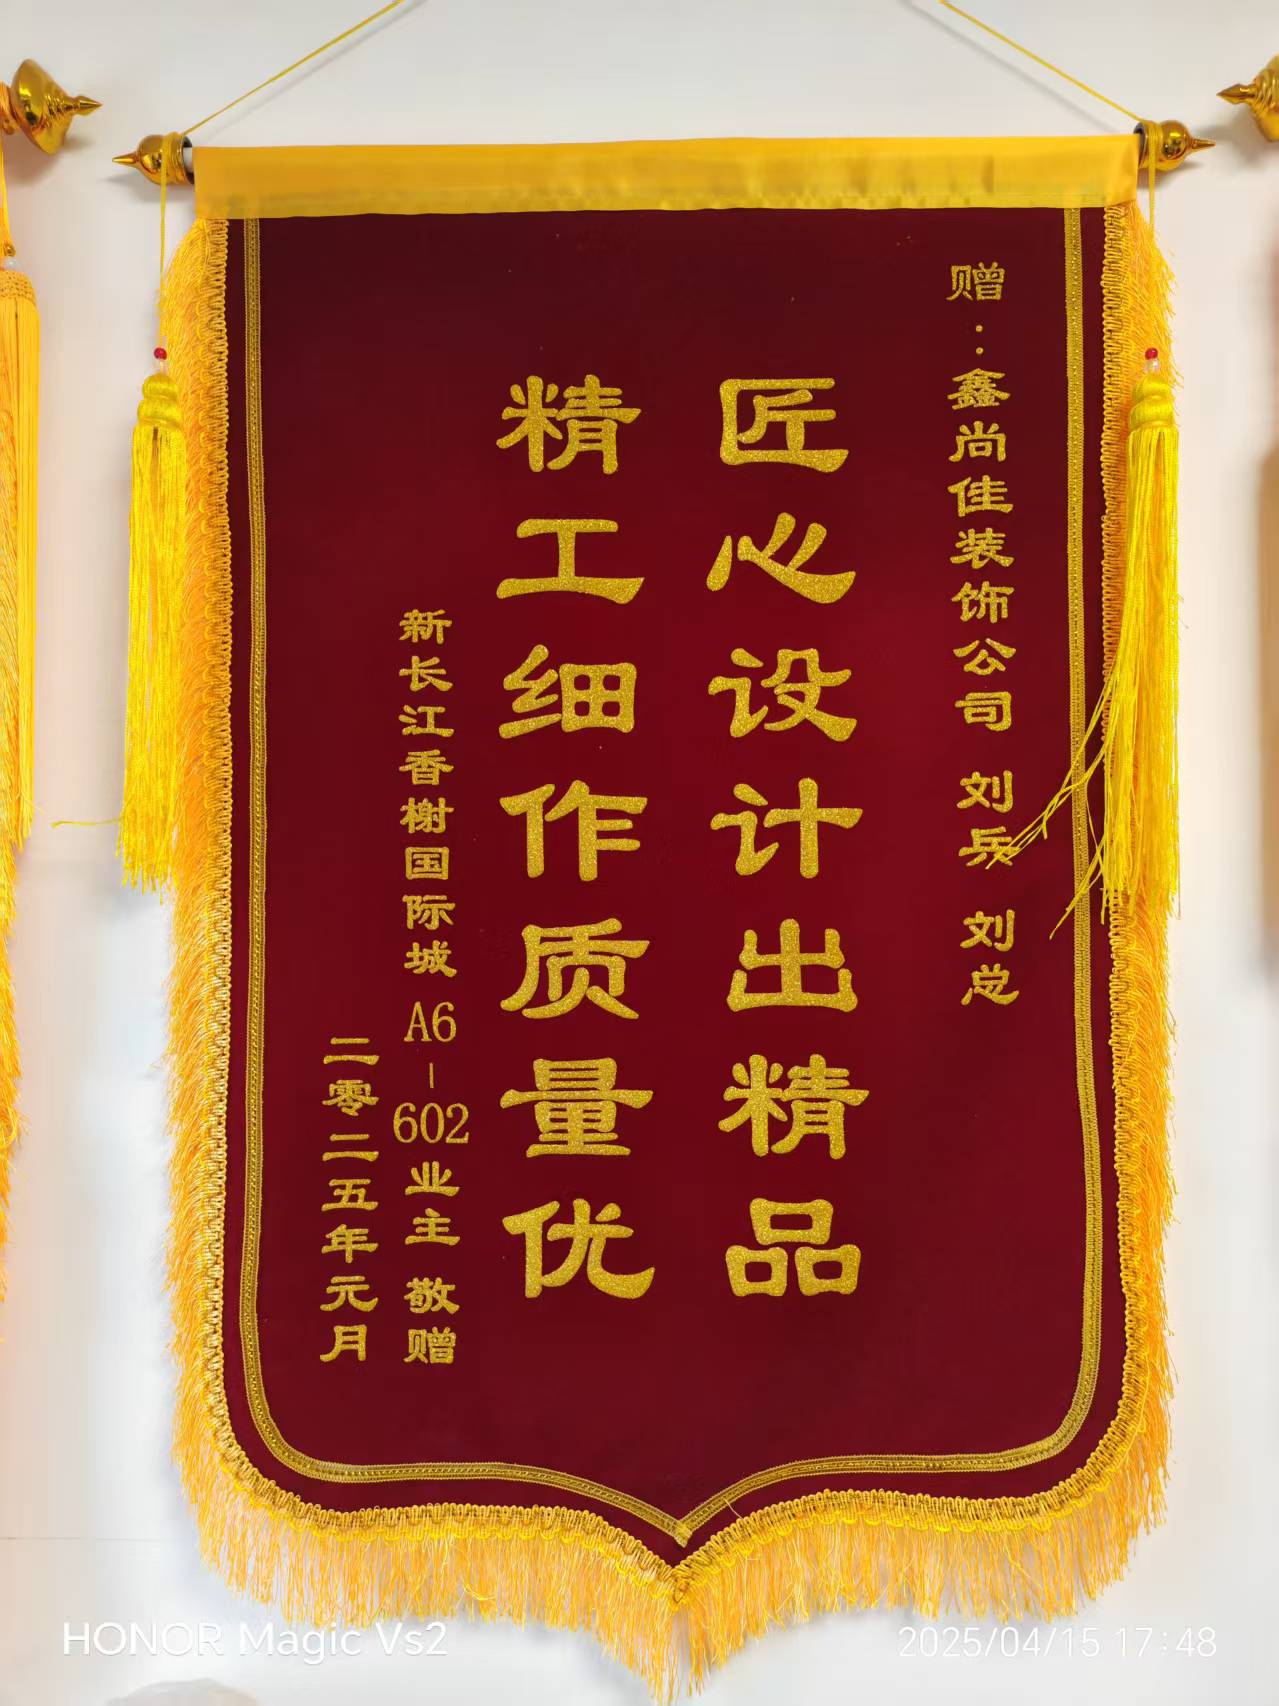 赠：鑫尚佳装饰公司 刘兵 刘总
匠心设计出精品
精工细作质量优
新长江香榭国际城A6-602业主 敬赠
二零二五年元月
HONOR Magic Vs2
2025/04/15 17:48